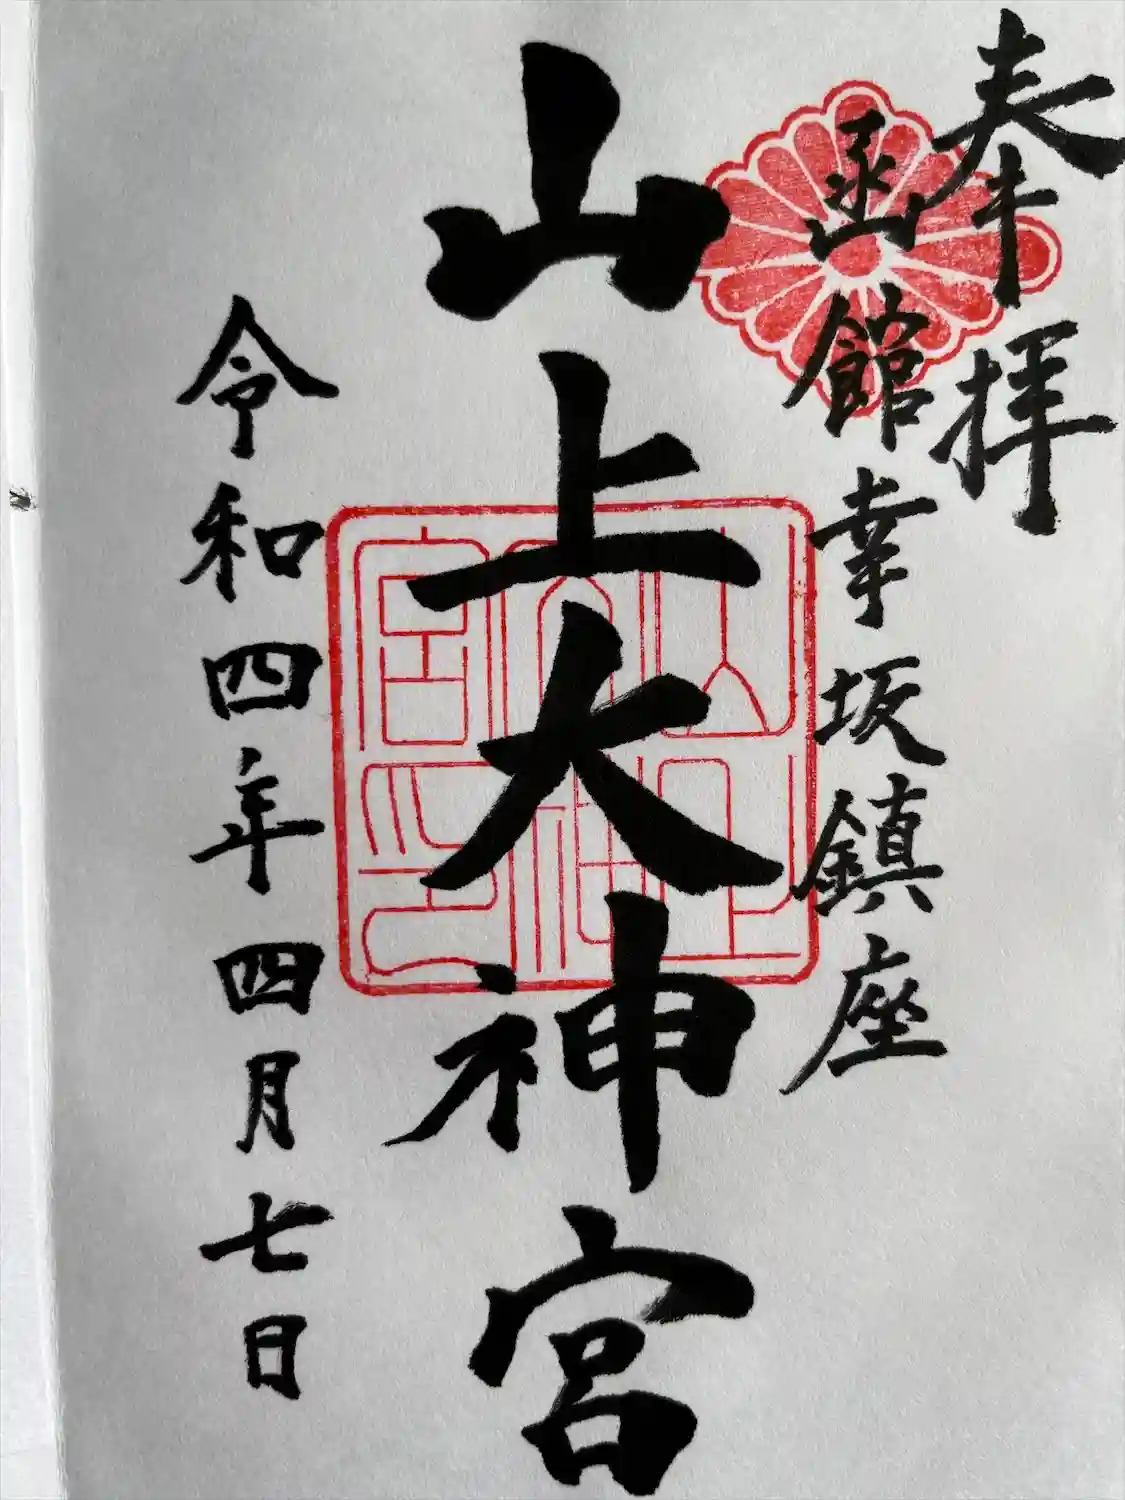 奉拝
函館幸坂鎮座
山上大神宮
令和四年四月七日